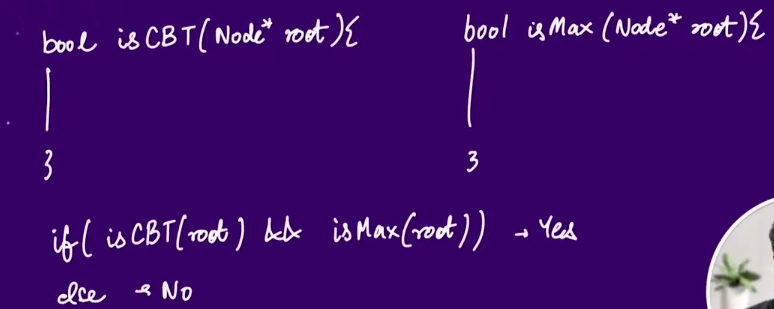 bool isCBT(Node* root){
}
bool isMax(Node* root){
}
if( isCBT(root) && isMax(root)) → Yes
else → No